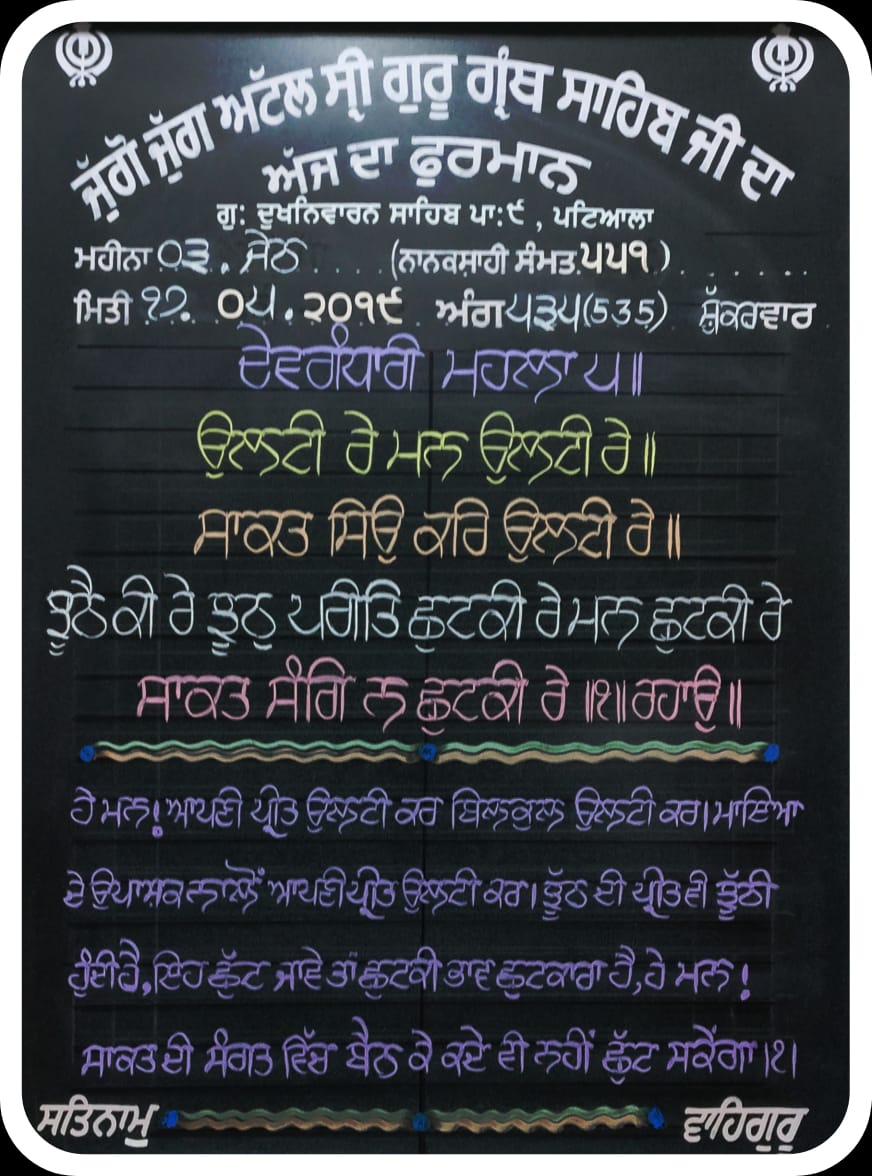 ਜੁੱਗੋ ਜੁੱਗ ਅੱਟਲ ਸ੍ਰੀ ਗੁਰੂ ਗ੍ਰੰਥ ਸਾਹਿਬ ਜੀ ਦਾ
ਅੱਜ ਦਾ ਫੁਰਮਾਨ
ਗੁ: ਦੁਖਨਿਵਾਰਨ ਸਾਹਿਬ ਪਾ:੯ , ਪਟਿਆਲਾ
ਮਹੀਨਾ ੦੩. ਜੇਠ.... (ਨਾਨਕਸ਼ਾਹੀ ਸੰਮਤ.੫੫੧).......
ਮਿਤੀ ੧੭. ੦੫.੨੦੧੯ ਅੰਗ ੫੩੫(535) ਸ਼ੁੱਕਰਵਾਰ
ਦੇਵਗੰਧਾਰੀ ਮਹਲਾ ੫॥
ਉਲਟੀ ਰੇ ਮਨ ਉਲਟੀ ਰੇ॥
ਸਾਕਤ ਸਿਉ ਕਰਿ ਉਲਟੀ ਰੇ॥
ਝੂਠੈ ਕੀ ਰੇ ਝੂਠੁ ਪਰੀਤਿ ਛੁਟਕੀ ਰੇ ਮਨ ਛੁਟਕੀ ਰੇ
ਸਾਕਤ ਸੰਗਿ ਨ ਛੁਟਕੀ ਰੇ ॥੧॥ ਰਹਾਉ॥
ਹੇ ਮਨ! ਆਪਣੀ ਪ੍ਰੀਤ ਉਲਟੀ ਕਰ ਬਿਲਕੁਲ ਉਲਟੀ ਕਰ। ਮਾਇਆ
ਦੇ ਉਪਾਸ਼ਕ ਨਾਲੋਂ ਆਪਣੀ ਪ੍ਰੀਤ ਉਲਟੀ ਕਰ। ਝੂੱਠ ਦੀ ਪ੍ਰੀਤ ਵੀ ਝੂੱਠੀ
ਹੁੰਦੀ ਹੈ, ਇਹ ਛੁੱਟ ਜਾਵੇ ਤਾਂ ਛੁਟਕੀ ਭਾਵ ਛੁਟਕਾਰਾ ਹੈ, ਹੇ ਮਨ!
ਸਾਕਤ ਦੀ ਸੰਗਤ ਵਿੱਚ ਬੈਠ ਕੇ ਕਦੇ ਵੀ ਨਹੀਂ ਛੁੱਟ ਸਕੇਂਗਾ।੧।
ਸਤਿਨਾਮੁ ਵਾਹਿਗੁਰੂ